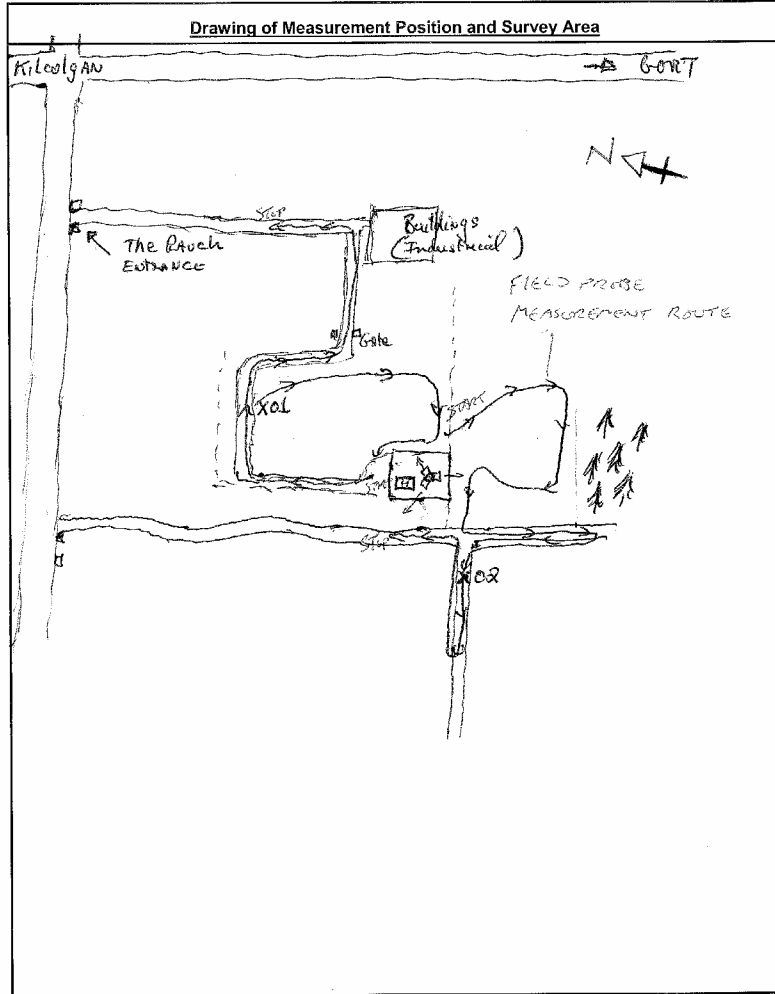 Drawing of Measurement Position and Survey Area
Kilcolgan
GORT
N
STOP
Buildings
(Industrial)
The Ranch
ENTRANCE
FIELD PROBE
MEASUREMENT ROUTE
Gate
X01
START
STOP
X02